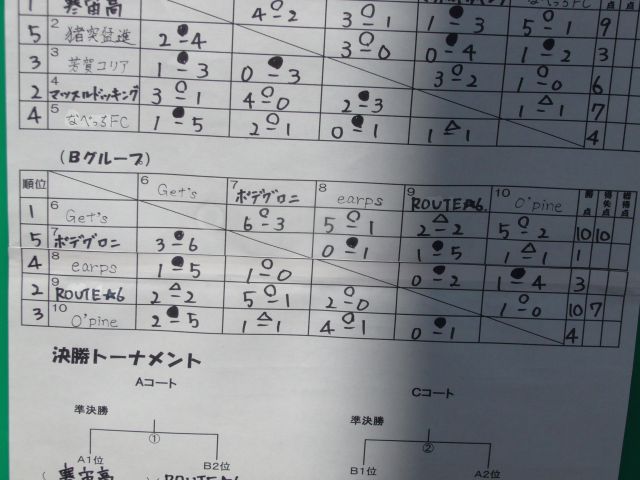 1 寒宙高 4-2 3-1 1-3 5-1 9
5 2 猪突猛進 2-4 3-0 0-4 1-2 3
3 3 芳賀コリア 1-3 0-3 3-2 1-0 6
2 4 マッスルドッキング 3-1 4-0 2-3 1-1 7
4 5 なべっちFC 1-5 2-1 0-1 1-1 4
(Bグループ)
順位 6 Get's 7 ボデグロニ 8 earps 9 ROUTE★6. 10 O'pine 勝点 得失点 総得点
1 6 Get's 6-3 5-1 2-2 5-2 10 10
5 7 ボデグロニ 3-6 0-1 1-5 1-1 1
4 8 earps 1-5 1-0 0-2 1-4 3
2 9 ROUTE★6 2-2 5-1 2-0 1-0 10 7
3 10 O'pine 2-5 1-1 4-1 0-1 4
決勝トーナメント
Aコート Cコート
準決勝 準決勝
① ②
A1位 B2位 B1位 A2位